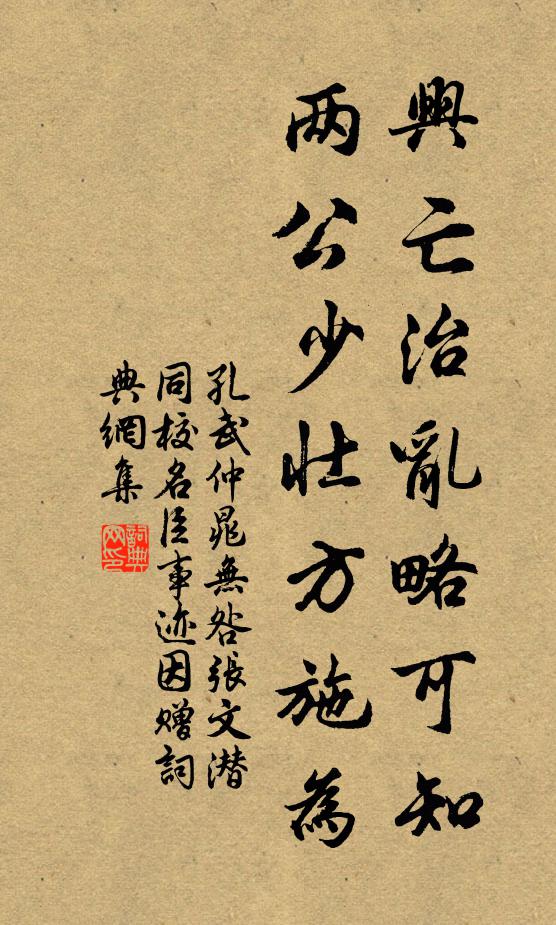 興亡治亂略可知
两公少壮方施為
孔武仲晁無咎張文潜
同校名臣事迹因赠詞
典網集
詞典网印